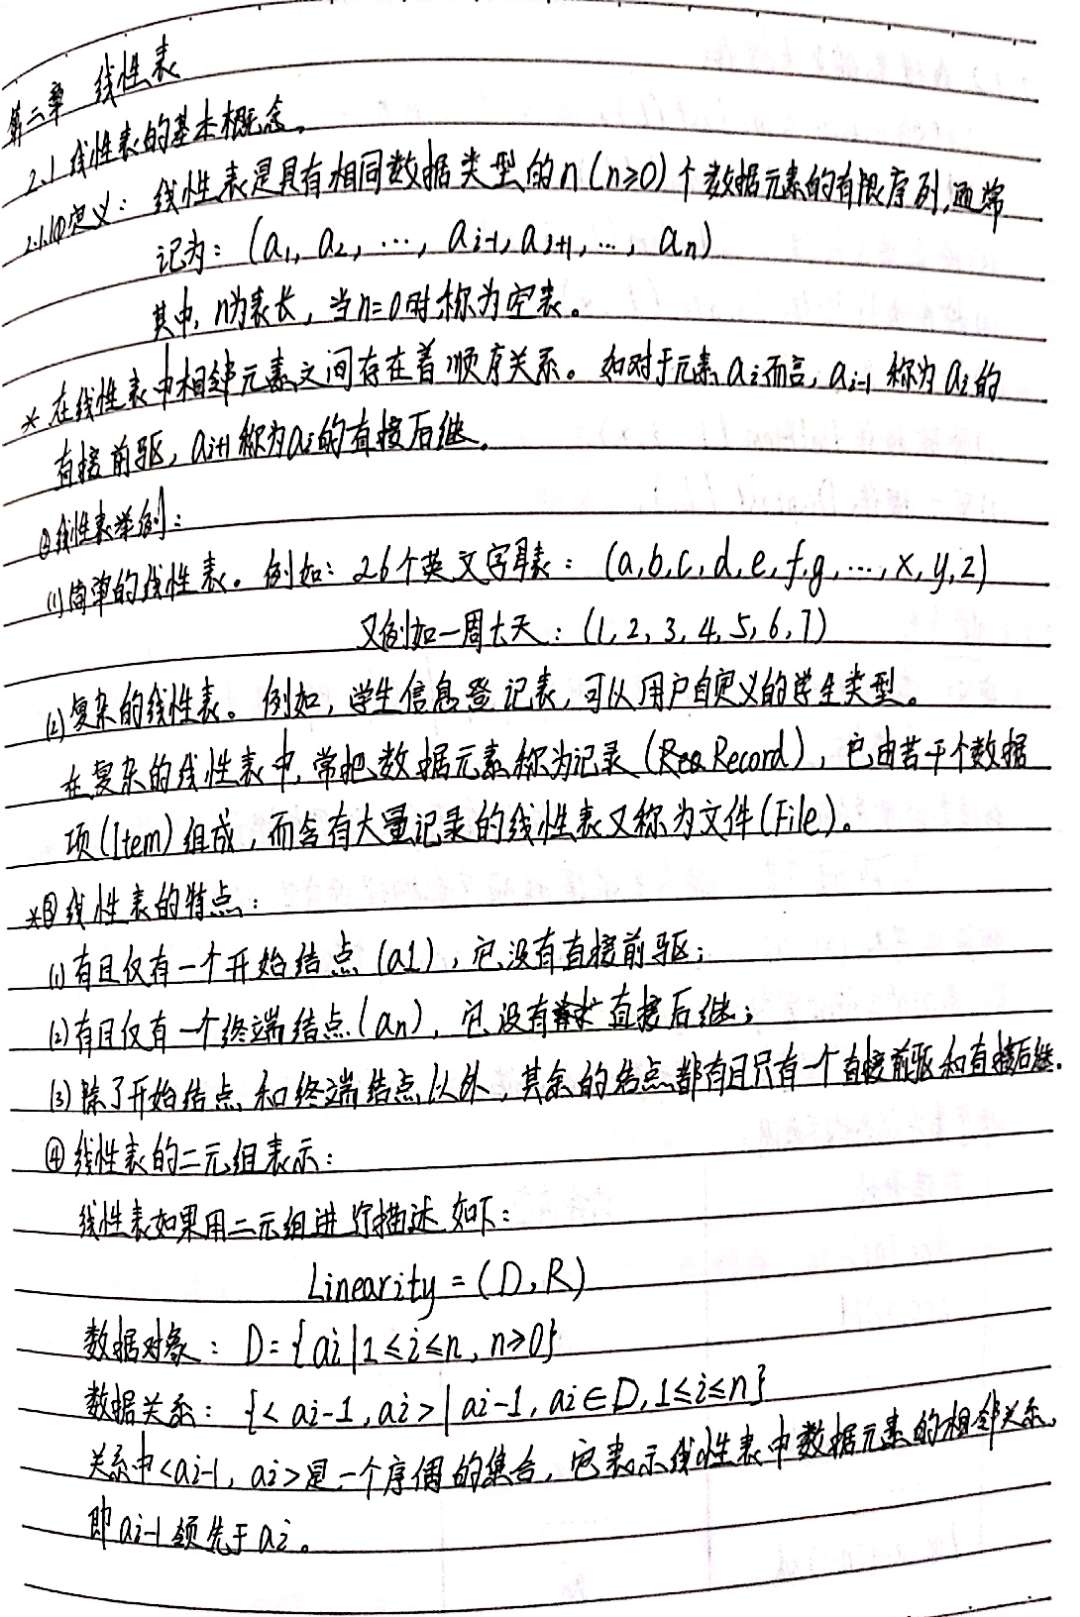 第二章 线性表
2.1 线性表的基本概念。
2.1.1①定义：线性表是具有相同数据类型的n(n≥0)个数据元素的有限序列,通常
记为：(a₁, a₂, …, aᵢ₋₁, aᵢ₊₁, …, aₙ)
其中, n为表长, 当n=0时,称为空表。
* 在线性表中相邻元素之间存在着顺序关系。如对于元素aᵢ而言, aᵢ₋₁ 称为aᵢ的
直接前驱, aᵢ₊₁称为aᵢ的直接后继。
②线性表举例：
(1)简单的线性表。例如：26个英文字母表：(a,b,c,d,e,f,g,…,x,y,z)
又例如一周七天：(1,2,3,4,5,6,7)
(2)复杂的线性表。例如, 学生信息登记表, 可以用户自定义的学生类型。
在复杂的线性表中, 常把数据元素称为记录(Record), 它由若干个数据
项(Item)组成, 而含有大量记录的线性表又称为文件(File)。
*③线性表的特点：
(1)有且仅有一个开始结点(a1), 它没有直接前驱;
(2)有且仅有一个终端结点(an), 它没有直接后继;
(3)除了开始结点和终端结点以外, 其余的结点都有且只有一个直接前驱和直接后继.
④线性表的二元组表示：
线性表如果用二元组进行描述如下：
Linearity=(D,R)
数据对象：D={ai|1≤i≤n, n≥0}
数据关系：{<ai-1,ai>|ai-1, ai∈D,1≤i≤n}
关系中<ai-1, ai>是一个序偶的集合, 它表示线性表中数据元素的相邻关系,
即ai-1领先于ai。